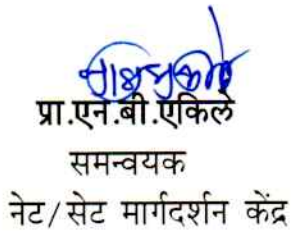 प्रा.एन.बी.एकिले
समन्वयक
नेट/सेट मार्गदर्शन केंद्र